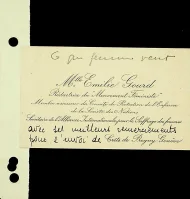 Mlle Emilie Gourd
Rédactrice du Mouvement Féministe
Membre assesseur du Comité de Protection de l'Enfance
de la Société des Nations
Secrétaire de l'Alliance Internationale pour le Suffrage des femmes
avec ses meilleurs remerciements
pour l'envoi de Crêts de Pregny, Genève